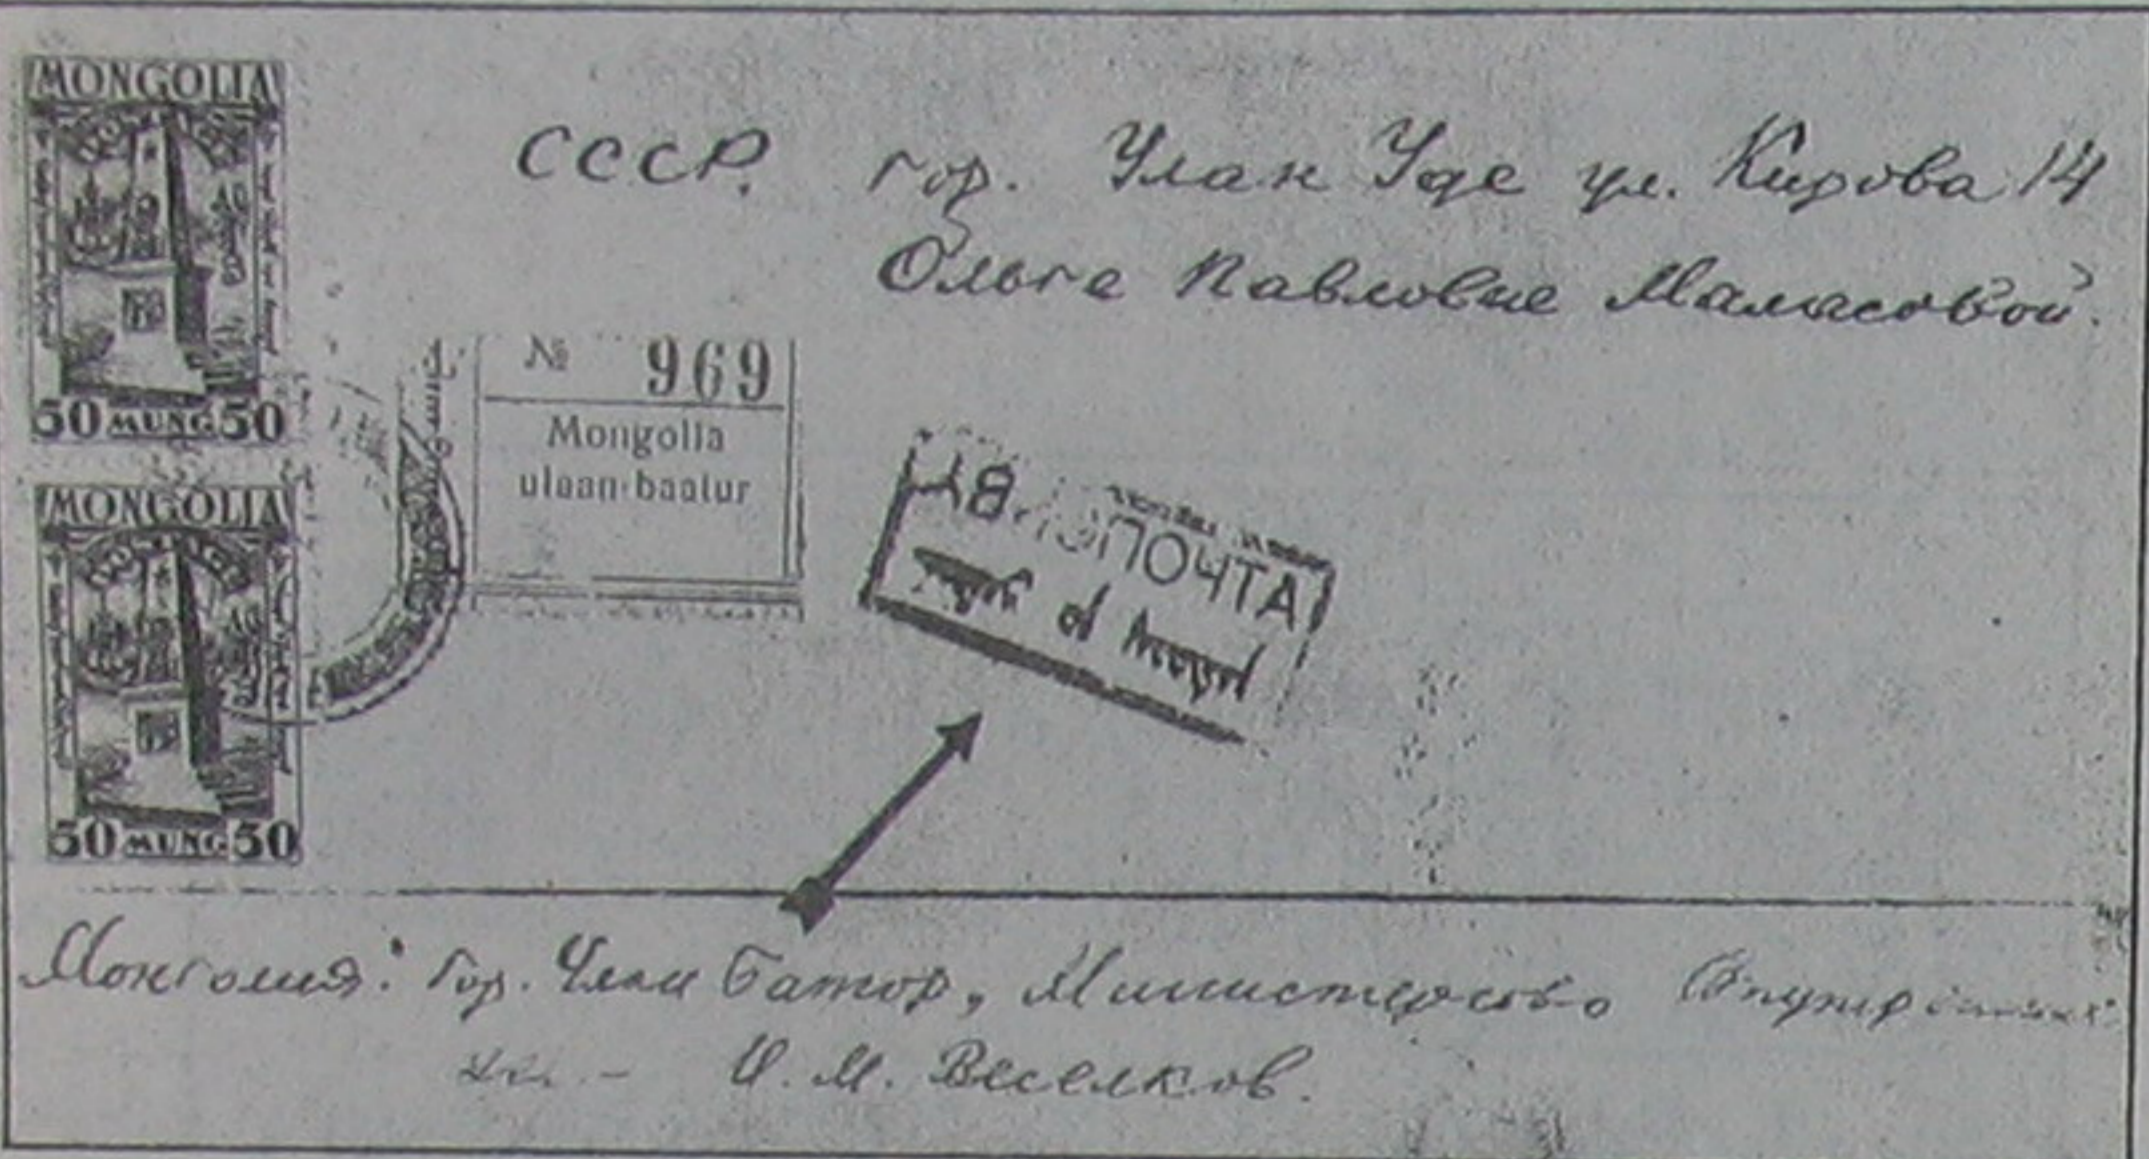 MONGOLIA
50 MUNG 50
MONGOLIA
50 MUNG 50
СССР. гор. Улан Уде ул. Кирова 14
Ольге Павловне Малясовой.
№ 969
Mongolia
ulaan-baatur
АВИОПОЧТА
Монголия: гор. Улан Батор, Министерство Внутренних
И. М. Веселков.